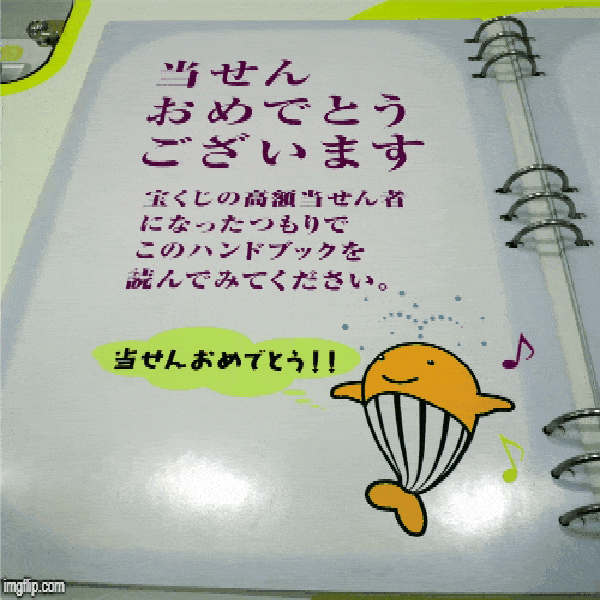 当せん
おめでとう
ございます
宝くじの高額当せん者
になったつもりで
このハンドブックを
読んでみてください。
当せんおめでとう!!
imgflip.com